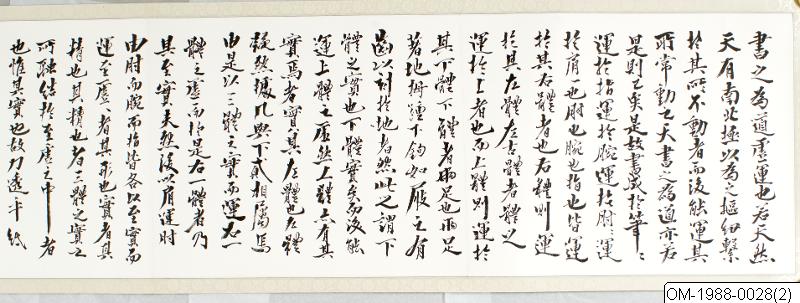 書之為道虛運也若天然
天有南北極以為之樞紐繫
於其所不動者而後能運其
所常動之天書之為道亦若
是則已矣是故書成於筆〻
運於指運於腕運於肘〻運
於肩〻也肘也腕也指也皆運
於其右體者也右體則運
於其左體左右體者體以
運於上者也而上體則運於
其下體下體者兩足也兩足
著地拇踵下鈎如屐之有
齒以刻於地者然此之謂下
體之實也下體實矣而後能
運上體之虛然上體亦有其
實焉者實其左體也左體
凝然據几與下貳相屬焉
由是以三體之實而運右一
體之虛而於是右一體者乃
其至實夫然後以肩運肘
由肘而腕而指皆各以至實而
運至虛〻者其形也實者其
精也其精也者三體之實之
所融結於至虛之中者
也惟其實也故力透乎紙
OM-1988-0028(2)